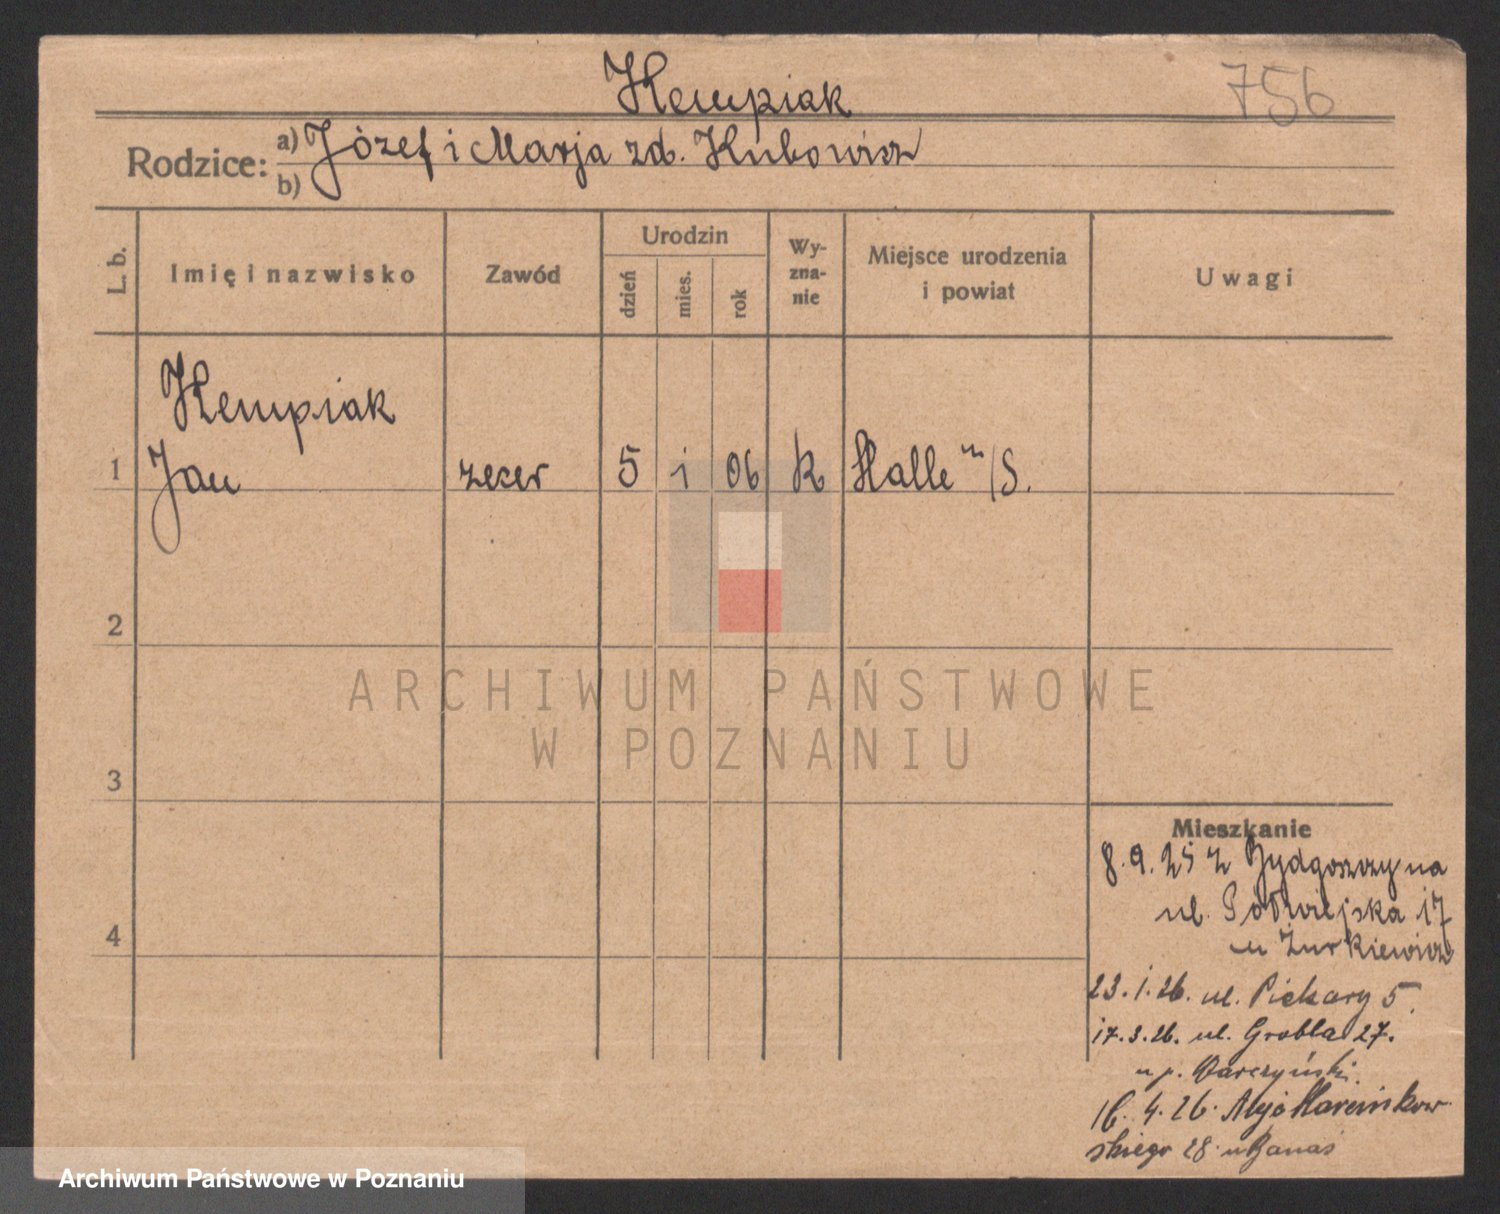 Kempiak
756
Rodzice: a) Józef i Marja zd. Kubowicz
b)
L. b.
Imię i nazwisko
Zawód
Urodzin
dzień
mies.
rok
Wy-
zna-
nie
Miejsce urodzenia
i powiat
Uwagi
Kempiak
1 Jan zecer 5 i 06 k Halle n/S.
2
3
4
ARCHIWUM PAŃSTWOWE
W POZNANIU
Mieszkanie
8.9.25 z Bydgoszczy na
ul. Półwiejska 17
u Żurkiewicz
23.1.26. ul. Piekary 5
17.3.26. ul. Grobla 27.
u p.
16.4.26. Aleje Marcinkow
skiego 28 u Banaś
Archiwum Państwowe w Poznaniu